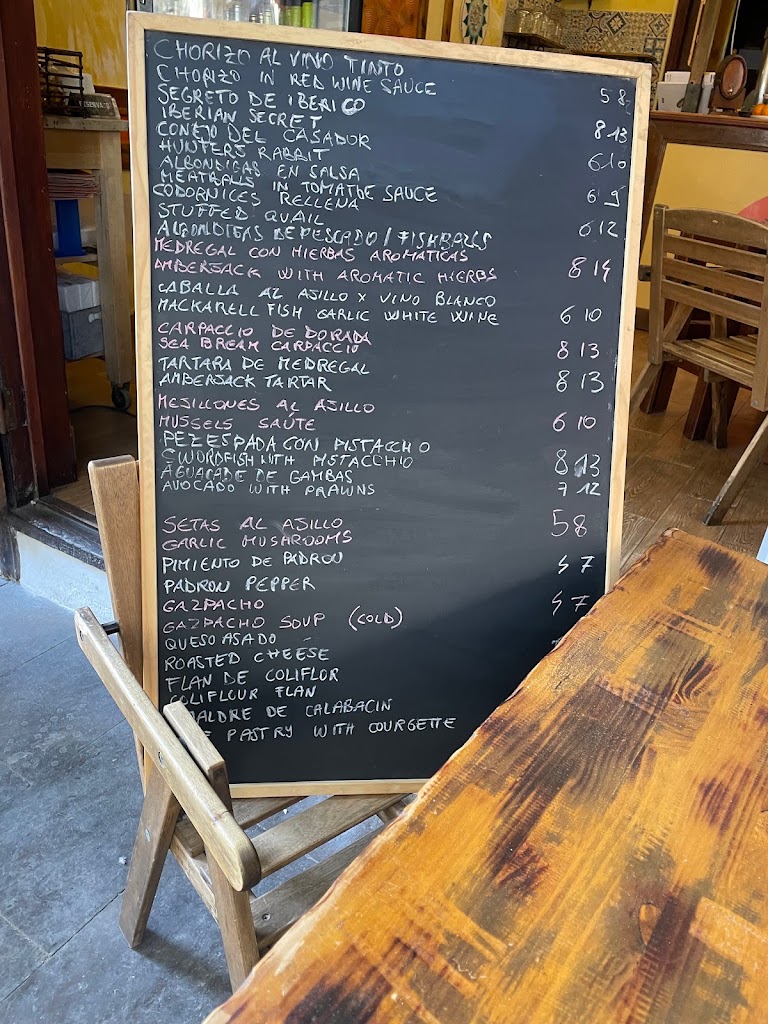 CHORIZO AL VINO TINTO
CHORIZO IN RED WINE SAUCE 5 8
SEGRETO DE IBERICO
IBERIAN SECRET 8 13
CONEJO DEL CASADOR
HUNTERS RABBIT 6 10
ALBONDIGAS EN SALSA
MEATBALLS IN TOMATOE SAUCE 6 9
CODORNICES RELLENA
STUFFED QUAIL 6 12
ALBONDIGAS DE PESCADO / FISHBALLS
MEDREGAL CON HIERBAS AROMATICAS
AMBERJACK WITH AROMATIC HERBS 8 14
CABALLA AL AJILLO X VINO BLANCO
MACKARELL FISH GARLIC WHITE WINE 6 10
CARPACCIO DE DORADA
SEA BREAM CARPACCIO 8 13
TARTARA DE MEDREGAL
AMBERJACK TARTAR 8 13
MEJILLONES AL AJILLO
MUSSELS SAUTE 6 10
PEZ ESPADA CON PISTACCHIO
SWORDFISH WITH PISTACCHIO 8 13
AGUACADE DE GAMBAS
AVOCADO WITH PRAWNS 7 12
SETAS AL AJILLO
GARLIC MUSHROOMS 5 8
PIMIENTO DE PADRON
PADRON PEPPER 4 7
GAZPACHO
GAZPACHO SOUP (COLD) 4 7
QUESO ASADO
ROASTED CHEESE
FLAN DE COLIFLOR
COLIFLOUR FLAN
ALDRE DE CALABACIN
PASTRY WITH COURGETTE
RESERVADO